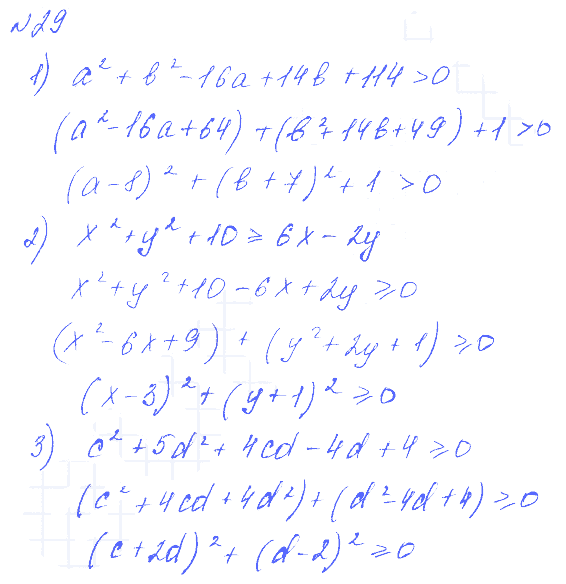 №29
1) a² + b² - 16a + 14b + 114 > 0
(a² - 16a + 64) + (b² + 14b + 49) + 1 > 0
(a - 8)² + (b + 7)² + 1 > 0
2) x² + y² + 10 ≥ 6x - 2y
x² + y² + 10 - 6x + 2y ≥ 0
(x² - 6x + 9) + (y² + 2y + 1) ≥ 0
(x - 3)² + (y + 1)² ≥ 0
3) c² + 5d² + 4cd - 4d + 4 ≥ 0
(c² + 4cd + 4d²) + (d² - 4d + 4) ≥ 0
(c + 2d)² + (d - 2)² ≥ 0